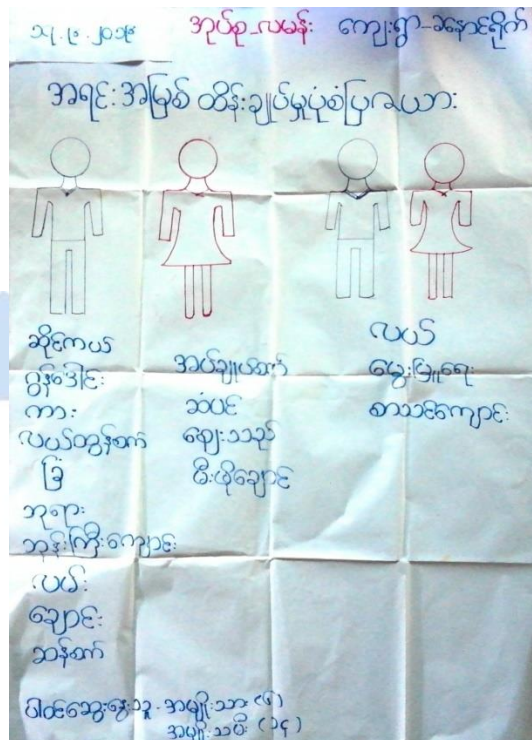 ၁၊.၉.၂၀၁၉ အုပ်စု-လမန်း ကျေးရွာ-ခနောင်ရိုက်
အရင်းအမြစ် ထိန်းချုပ်မှုပုံစံပြဇယား
ဆိုင်ကယ်
ဂွန်ဒေါင်း
ကား
လယ်ထွန်စက်
ခြံ
ဘုရား
ဘုန်းကြီးကျောင်း
လမ်း
ချောင်း
ဆန်စက်
အပ်ချုပ်စက်
ဆံပင်
ဈေးသည်
မီးဖိုချောင်
လယ်
မွေးမြူရေး
စာသင်ကျောင်း
ပါဝင်ဆွေးနွေးသူ - အမျိုးသား (၆)
အမျိုးသမီး (၁၄)